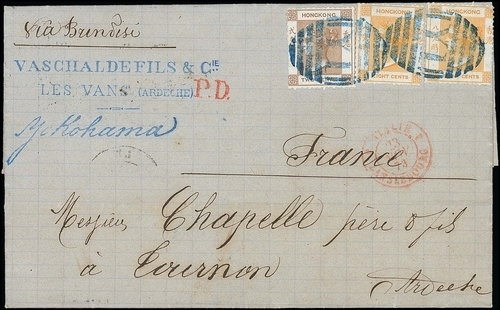 via Brindisi
HONGKONG HONGKONG HONGKONG
EIGHT CENTS
VASCHALDE FILS & CIE
LES VANS (ARDECHE) P.D.
Yokohama
France
Messieurs Chapelle père & fils
à Tournon
Ardèche